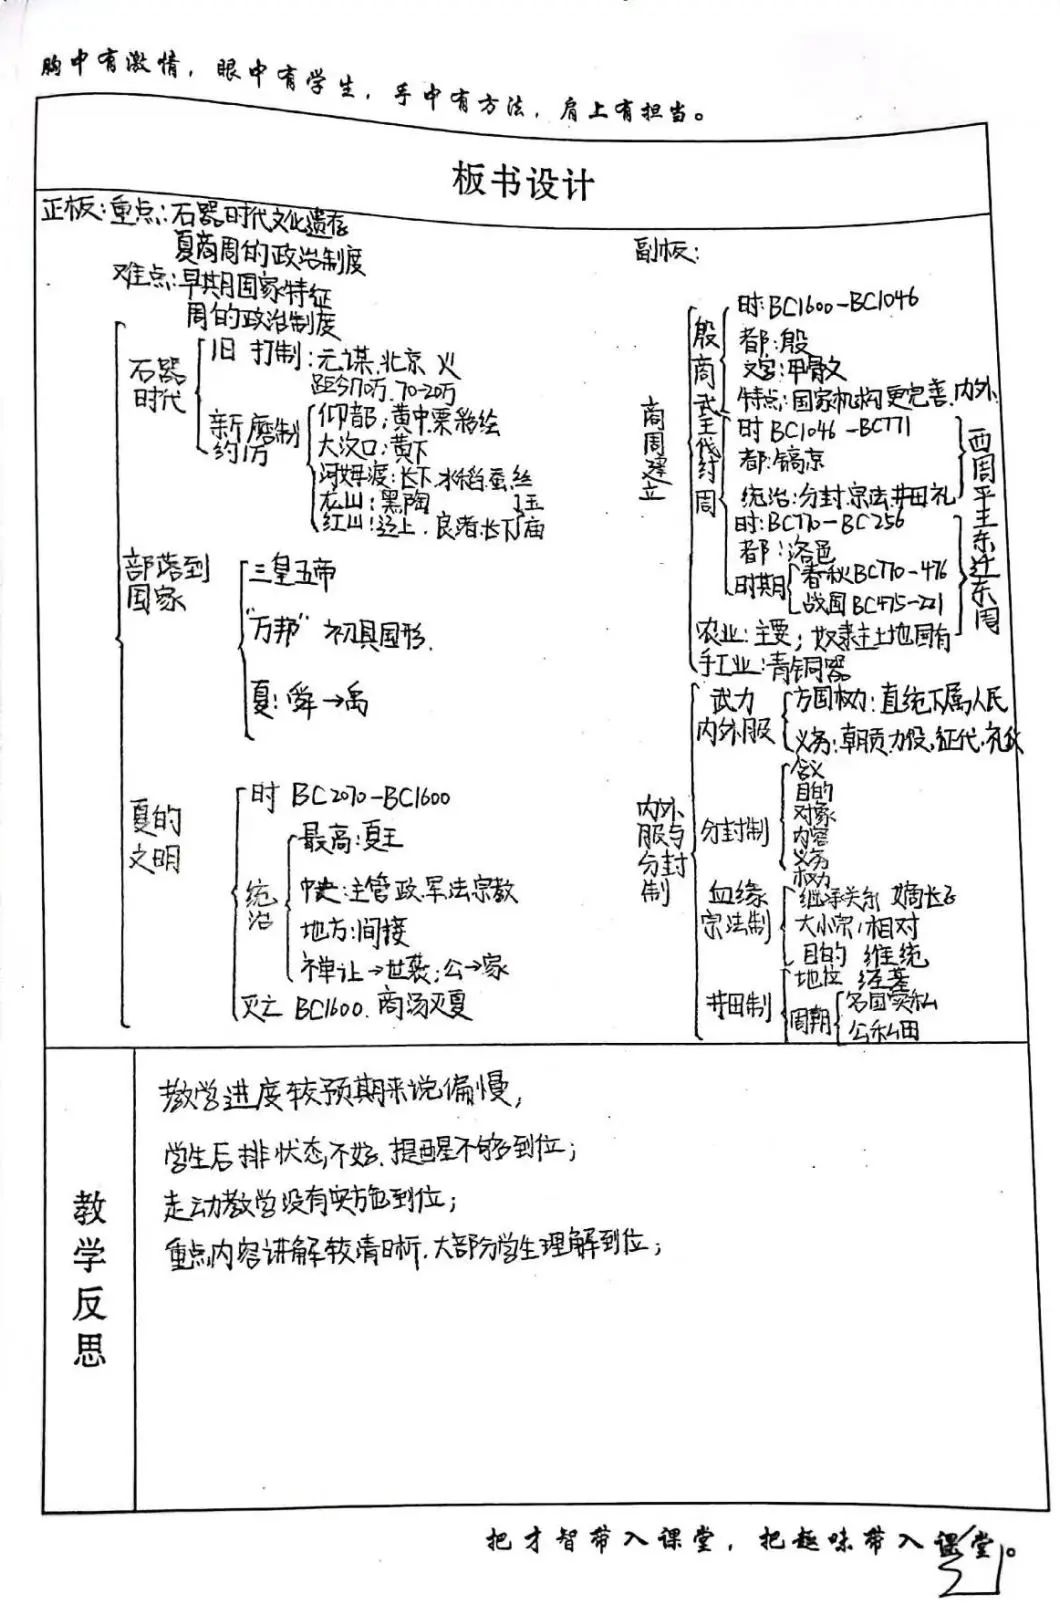 胸中有激情，眼中有学生，手中有方法，肩上有担当。
板书设计
正板：重点：石器时代文化遗存
夏商周的政治制度
难点：早期国家特征
周的政治制度
石器时代
旧 打制：元谋.北京 火
距今170万. 70-20万
新 磨制
约1万
仰韶：黄中.粟.彩绘
大汶口：黄下
河姆渡：长下.水稻.蚕丝
龙山：黑陶
红山：辽上.良渚:长下
玉
庙
部落到国家
三皇五帝
"万邦" 初具国形.
夏：舜→禹
夏的文明
时 BC2070-BC1600
统治
最高：夏王
中央：主管政.军法宗教
地方：间接
禅让→世袭；公→家
灭亡 BC1600. 商汤灭夏
副板：
商周建立
殷商
时：BC1600-BC1046
都：殷
文字：甲骨文
特点：国家机构更完善.内外
武王伐纣
周
时 BC1046-BC771
都：镐京
统治：分封.宗法.井田.礼
时：BC770-BC256
都：洛邑
时期
春秋BC770-476
战国BC475-221
西周平王东迁东周
农业：主要；奴隶主土地国有
手工业：青铜器
内外服与分封制
武力
内外服
方国权力：直统下属人民
义务：朝贡.力役.征伐.
分封制
含义
目的
对象
内容
义务
权力
血缘
宗法制
继承关系 嫡长子
大小宗；相对
目的 维统
井田制
地位 经基
周朝
名国实私
公私田
教学反思
教学进度较预期来说偏慢，
学生后排状态不好.提醒不够到位；
走动教学没有实施到位；
重点内容讲解较清晰.大部分学生理解到位；
把才智带入课堂，把趣味带入课堂。